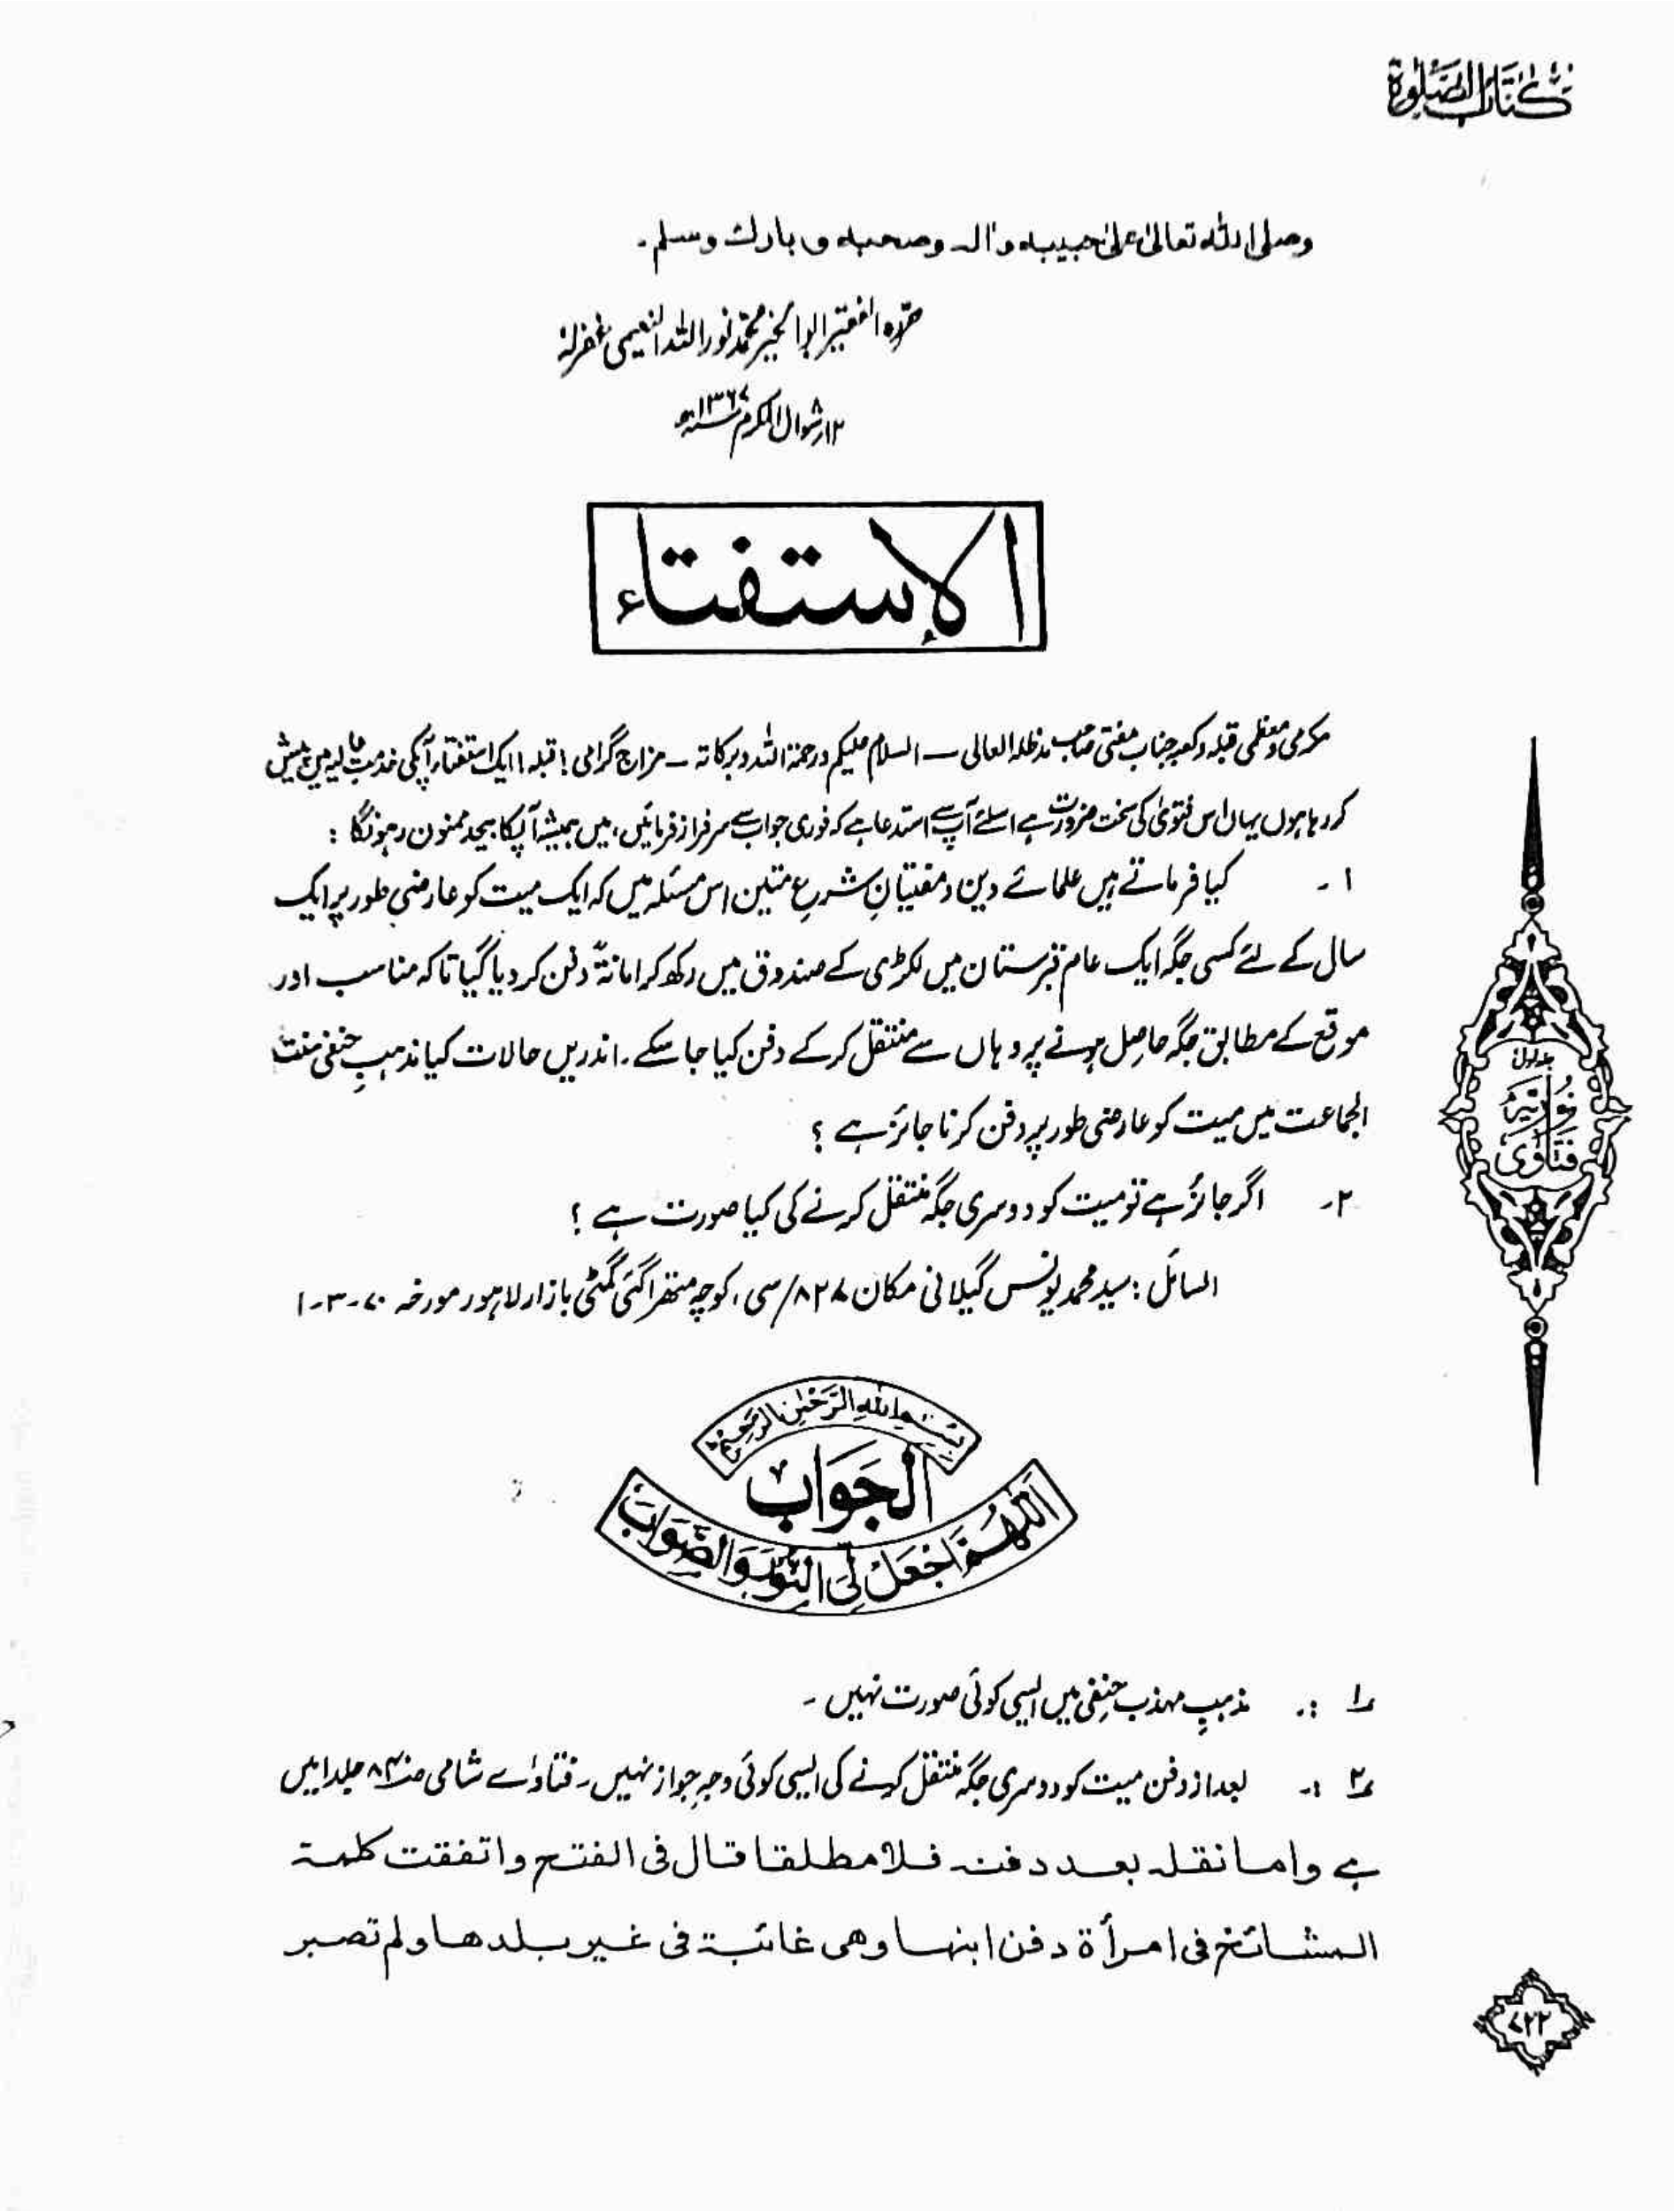 كتاب الصلوة
وصلی الله تعالیٰ علیٰ حبیبه واٰله وصحبه وبارك وسلم۔
حرّرہ الفقیر ابو الخیر محمّد نور اللہ النعیمی غفرلہٗ
۱۲ شوال المکرم ۱۳۶۷ھ
الإستفتاء
مکرمی و معظمی قبلہ و کعبہ جناب مفتی صاحب مدظلہ العالی ــ السلام علیکم ورحمۃ اللہ وبرکاتہ ــ مزاج گرامی! قبلہ! ایک استفتاء آپکی خدمت عالیہ میں پیش
کر رہا ہوں یہاں اس فتویٰ کی سخت ضرورت ہے اسلئے آپ سے استدعا ہے کہ فوری جواب سے سرفراز فرمائیں، میں ہمیشہ آپکا بیحد ممنون رہونگا :
۱۔ کیا فرماتے ہیں علمائے دین و مفتیانِ شرع متین اس مسئلہ میں کہ ایک میت کو عارضی طور پر ایک
سال کے لئے کسی جگہ ایک عام قبرستان میں لکڑی کے صندوق میں رکھ کر امانۃً دفن کر دیا گیا تاکہ مناسب اور
موقع کے مطابق جگہ حاصل ہونے پر وہاں سے منتقل کر کے دفن کیا جا سکے۔ اندریں حالات کیا مذہبِ حنفی سنت
الجماعت میں میت کو عارضی طور پر دفن کرنا جائز ہے ؟
۲۔ اگر جائز ہے تو میت کو دوسری جگہ منتقل کرنے کی کیا صورت ہے ؟
السائل : سید محمد یونس گیلانی مکان ۸۲۷/سی، کوچہ متھرا گئی گمٹی بازار لاہور مورخہ ۷۰-۳-۱
بسم الله الرحمٰن الرحيم
الجواب
اللهم اجعل لي النور والصواب
۱ :. مذہبِ مہذب حنفی میں ایسی کوئی صورت نہیں ۔
۲ :- بعد از دفن میت کو دوسری جگہ منتقل کرنے کی ایسی کوئی وجہِ جواز نہیں۔ فتاوٰے شامی ص۸۴۰ جلد۱ میں
ہے واما نقله بعد دفنه فلا مطلقا قال فی الفتح واتفقت کلمة
المشائخ فی امرأة دفن ابنها وهی غائبة فی غیر بلدها ولم تصبر
جلد اول
نوریہ
فتاوٰی
۷۲۲